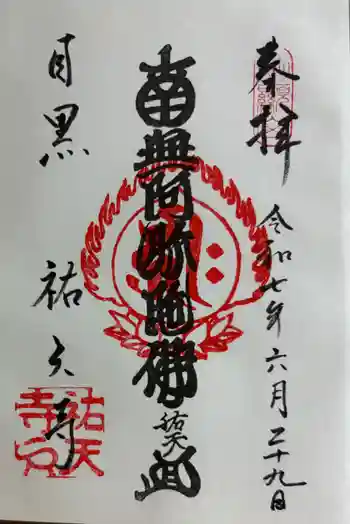 奉拝
令和七年六月二十九日
南無阿弥陀佛
祐天
目黒 祐天寺
祐天寺印